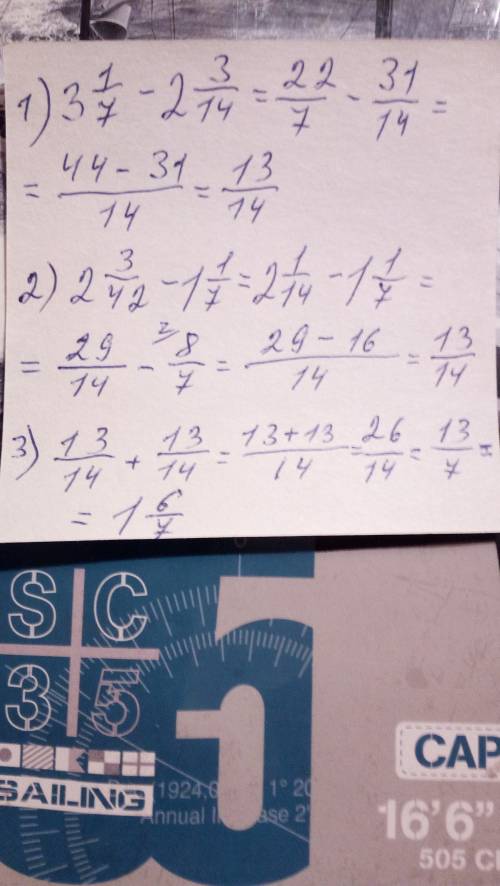 1) 3 1/7 - 2 3/14 = 22/7 - 31/14 =
= 44-31/14 = 13/14
2) 2 3/42 - 1 1/7 = 2 1/14 - 1 1/7 =
= 29/14 - 2/ 8/7 = 29-16/14 = 13/14
3) 13/14 + 13/14 = 13+13/14 = 26/14 = 13/7 =
= 1 6/7
SC
35
5
SAILING
1924,0
1° 20
Annual
CAP
16'6"
505